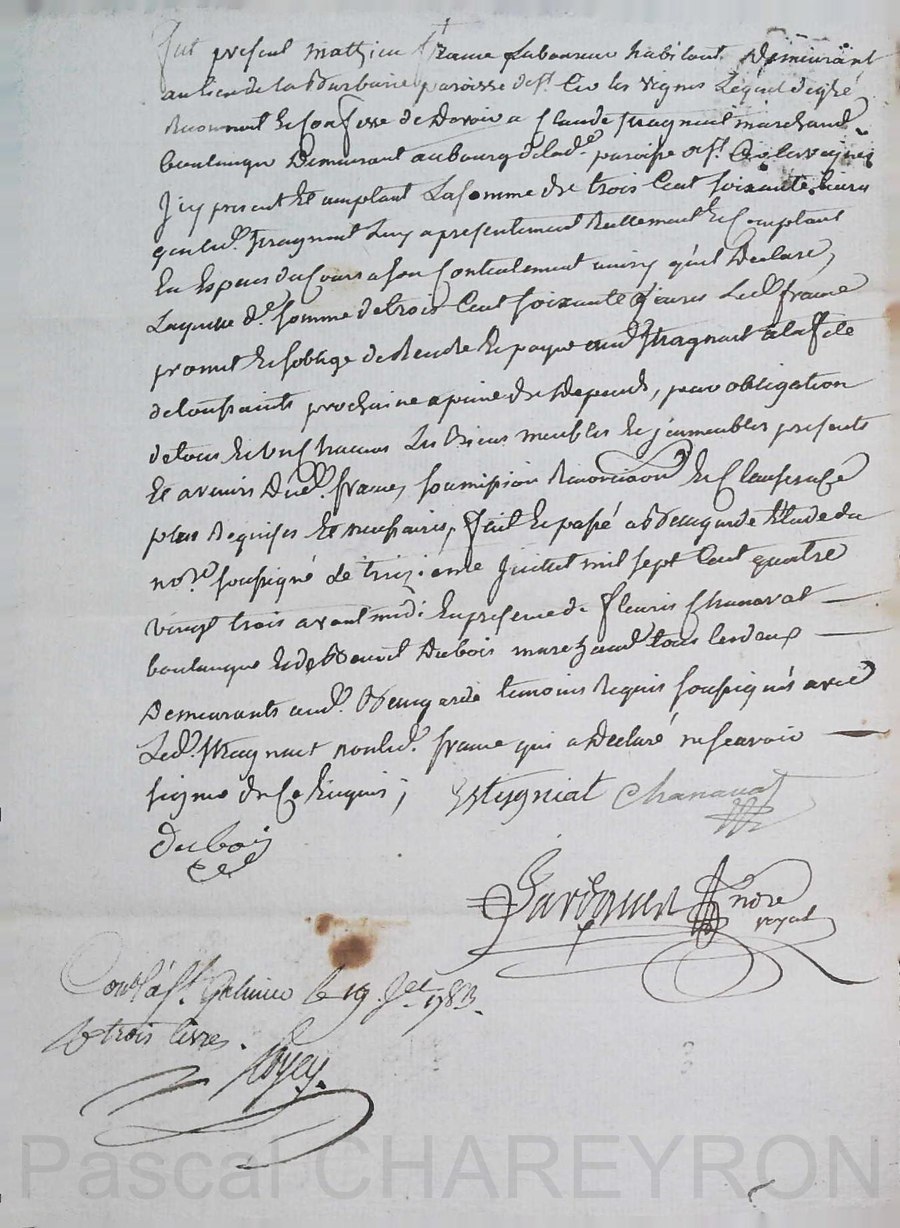 fut present mathieu frame Laboureur habitant Demeurant
au lieu de la Barbarie paroisse de st. Cir les vignes Lequel de gré
Reconnoit Et Confesse de Devoir a Claude Magniat marchand
boulanger Demeurant au bourg de lad.e paroisse de st. Cir les vignes
Icy present Et acceptant La somme de trois Cent soixante livres
que led. Magniat Luy a presentement Reellement Et Comptant
En Especes du Cours a son Contentement ainsy qu'il Declare,
Laquelle d.e somme de trois Cent soixante livres Led. frame
promet Et soblige de Rendre Et payer aud. Magniat a la fete
de toussaints prochaine a peine de Depends, par obligation
de tous Et uns Chacuns Les Biens meubles Et jmmeubles presents
Et avenirs Dud. frame, soumission Renonciaon Et Clauses a ce
plus Requises Et necessaires, fait Et passé a Beauregarde Etude du
no.re soussigné Le treizieme Juillet mil sept Cent quatre
vingt trois avant midi En presence de fleuris Chanavat
boulanger Et de Benoit Dubois marchand tous les deux
Demeurants aud. temoins Requis soussignés avec
Led. Magniat non led. frame qui a Declaré ne scavoir
signer de Ce Enquis ;
Chanavat
Dubois
nore
royal
Conlé a st. Galmier le 19. Jet 1783.
R trois livres.
Pascal CHAREYRON